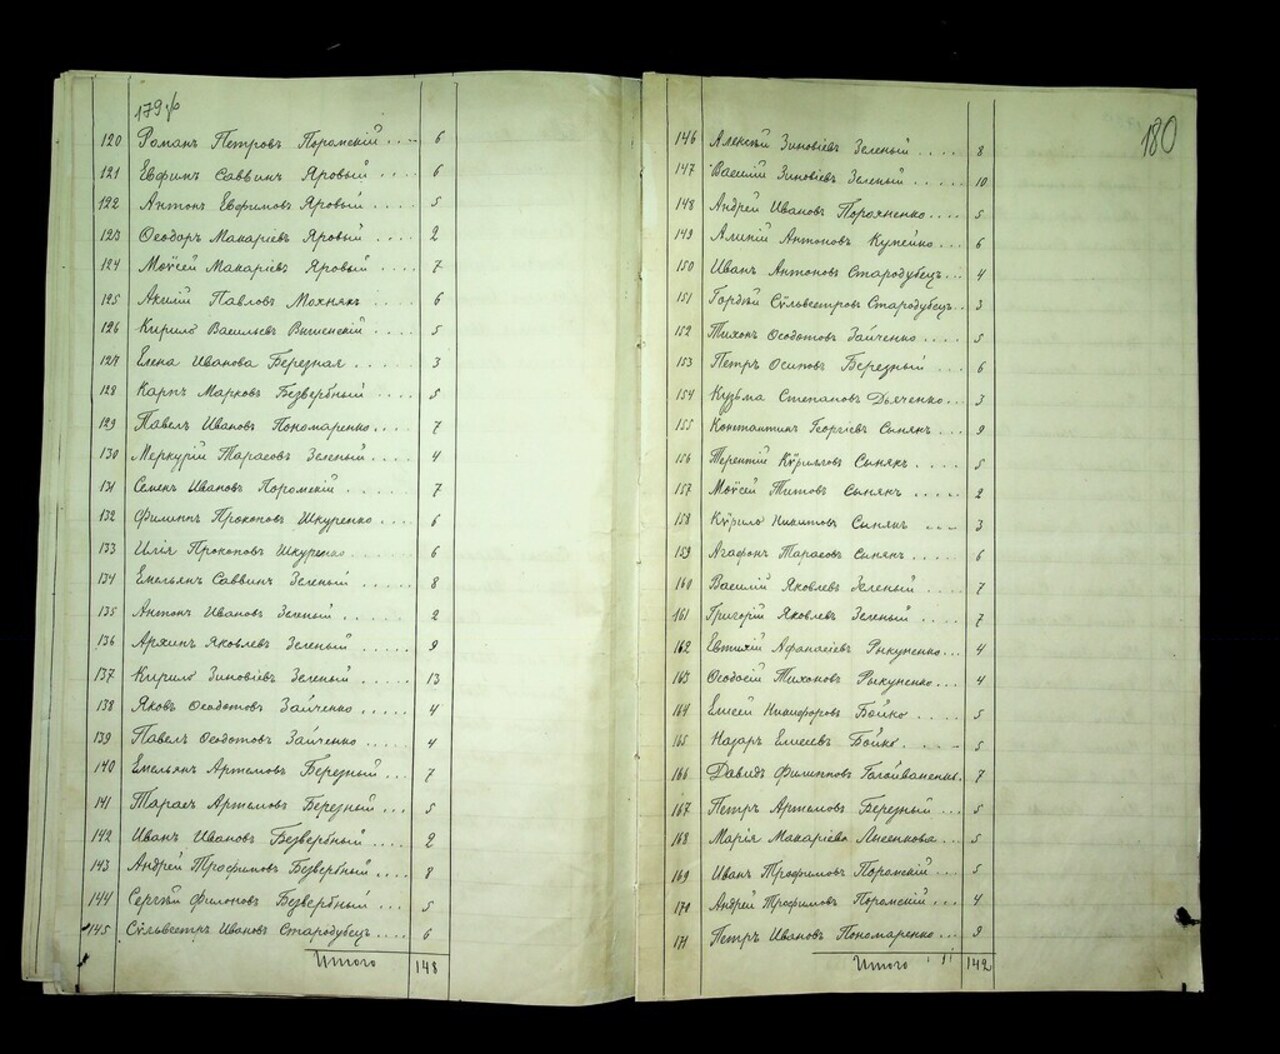 179 об
120 Романъ Петровъ Поромскій .... 6
121 Евфимъ Саввинъ Яровый .... 6
122 Антонъ Евфимовъ Яровый .... 5
123 Ѳеодоръ Макаріевъ Яровый .... 2
124 Моѵсей Макаріевъ Яровый .... 7
125 Акилій Павловъ Мохнякъ .... 6
126 Кирило Васильевъ Вышенскій .... 5
127 Елена Иванова Березная .... 3
128 Карпъ Марковъ Безвербный .... 5
129 Павелъ Ивановъ Пономаренко .... 7
130 Меркурій Тарасовъ Зеленый .... 4
131 Семенъ Ивановъ Поромскій ..... 7
132 Филиппъ Прокоповъ Шкуренко .... 6
133 Илія Прокоповъ Шкуренко ..... 6
134 Емельянъ Саввинъ Зеленый ..... 8
135 Антонъ Ивановъ Зеленый ..... 2
136 Архипъ Яковлевъ Зеленый ..... 9
137 Кирило Зиновіевъ Зеленый ..... 13
138 Яковъ Ѳеодотовъ Зайченко ..... 4
139 Павелъ Ѳеодотовъ Зайченко ..... 4
140 Емельянъ Артемовъ Березный ... 7
141 Тарасъ Артемовъ Березный ... 5
142 Иванъ Ивановъ Безвербный .... 2
143 Андрей Трофимовъ Безвербный .... 8
144 Сергѣй Филоновъ Безвербный ... 5
145 Сѵльвестръ Ивановъ Стародубецъ .... 6
Итого 148
180
146 Алексѣй Зиновіевъ Зеленый .... 8
147 Василій Зиновіевъ Зеленый ..... 10
148 Андрей Ивановъ Порохненко .... 5
149 Алипій Антоновъ Купейко ... 6
150 Иванъ Антоновъ Стародубецъ ... 4
151 Гордѣй Сѵльвестровъ Стародубецъ .. 3
152 Тихонъ Ѳеодотовъ Зайченко .... 5
153 Петръ Осиповъ Березный ... 6
154 Кузьма Степановъ Дьяченко ... 3
155 Константинъ Георгіевъ Сынякъ ... 9
156 Терентій Кѵрилловъ Сынякъ .... 5
157 Моѵсей Титовъ Сынякъ ..... 2
158 Кѵрило Никитовъ Сынякъ .... 3
159 Агафонъ Тарасовъ Сынякъ .... 6
160 Василій Яковлевъ Зеленый .... 7
161 Григорій Яковлевъ Зеленый .... 7
162 Евтихій Афанасіевъ Рыкуненко ... 4
163 Ѳеодосій Тихоновъ Рыкуненко ... 4
164 Елисей Никифоровъ Бойко .... 5
165 Назаръ Елисеевъ Бойко .... 5
166 Давидъ Филипповъ 7
167 Петръ Артемовъ Березный ... 5
168 Марія Макаріева Лисенкова ... 5
169 Иванъ Трофимовъ Поромскій ... 5
170 Андрей Трофимовъ Поромскій ... 4
171 Петръ Ивановъ Пономаренко ... 9
Итого 142